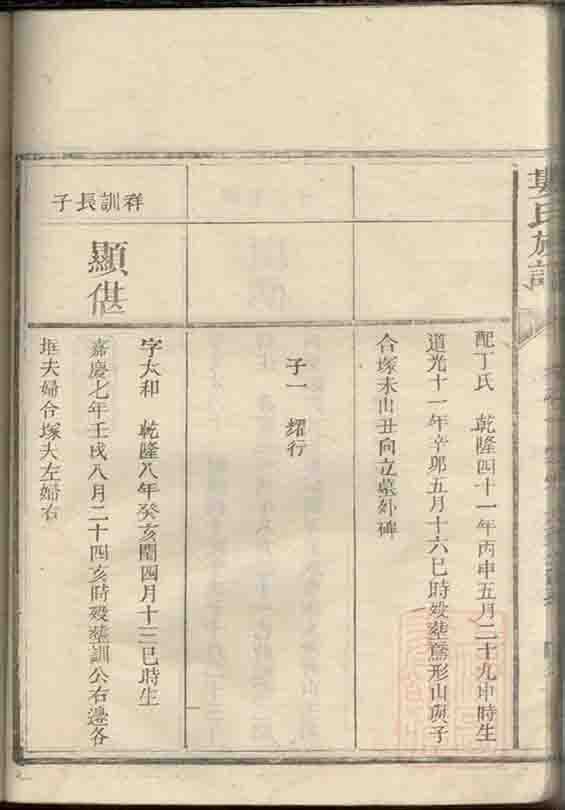 氏族譜
配丁氏 乾隆四十一年丙申五月二十九申時生
道光十一年辛卯五月十六巳時歿塟鵞形山與子
合塚未山丑向立墓外碑
子一 耀行
祥訓長子
顯偡
字太和 乾隆八年癸亥閏四月十三巳時生
嘉慶七年壬戌八月二十四亥時歿塟訓公右邊各
坵夫婦合塚夫左婦右